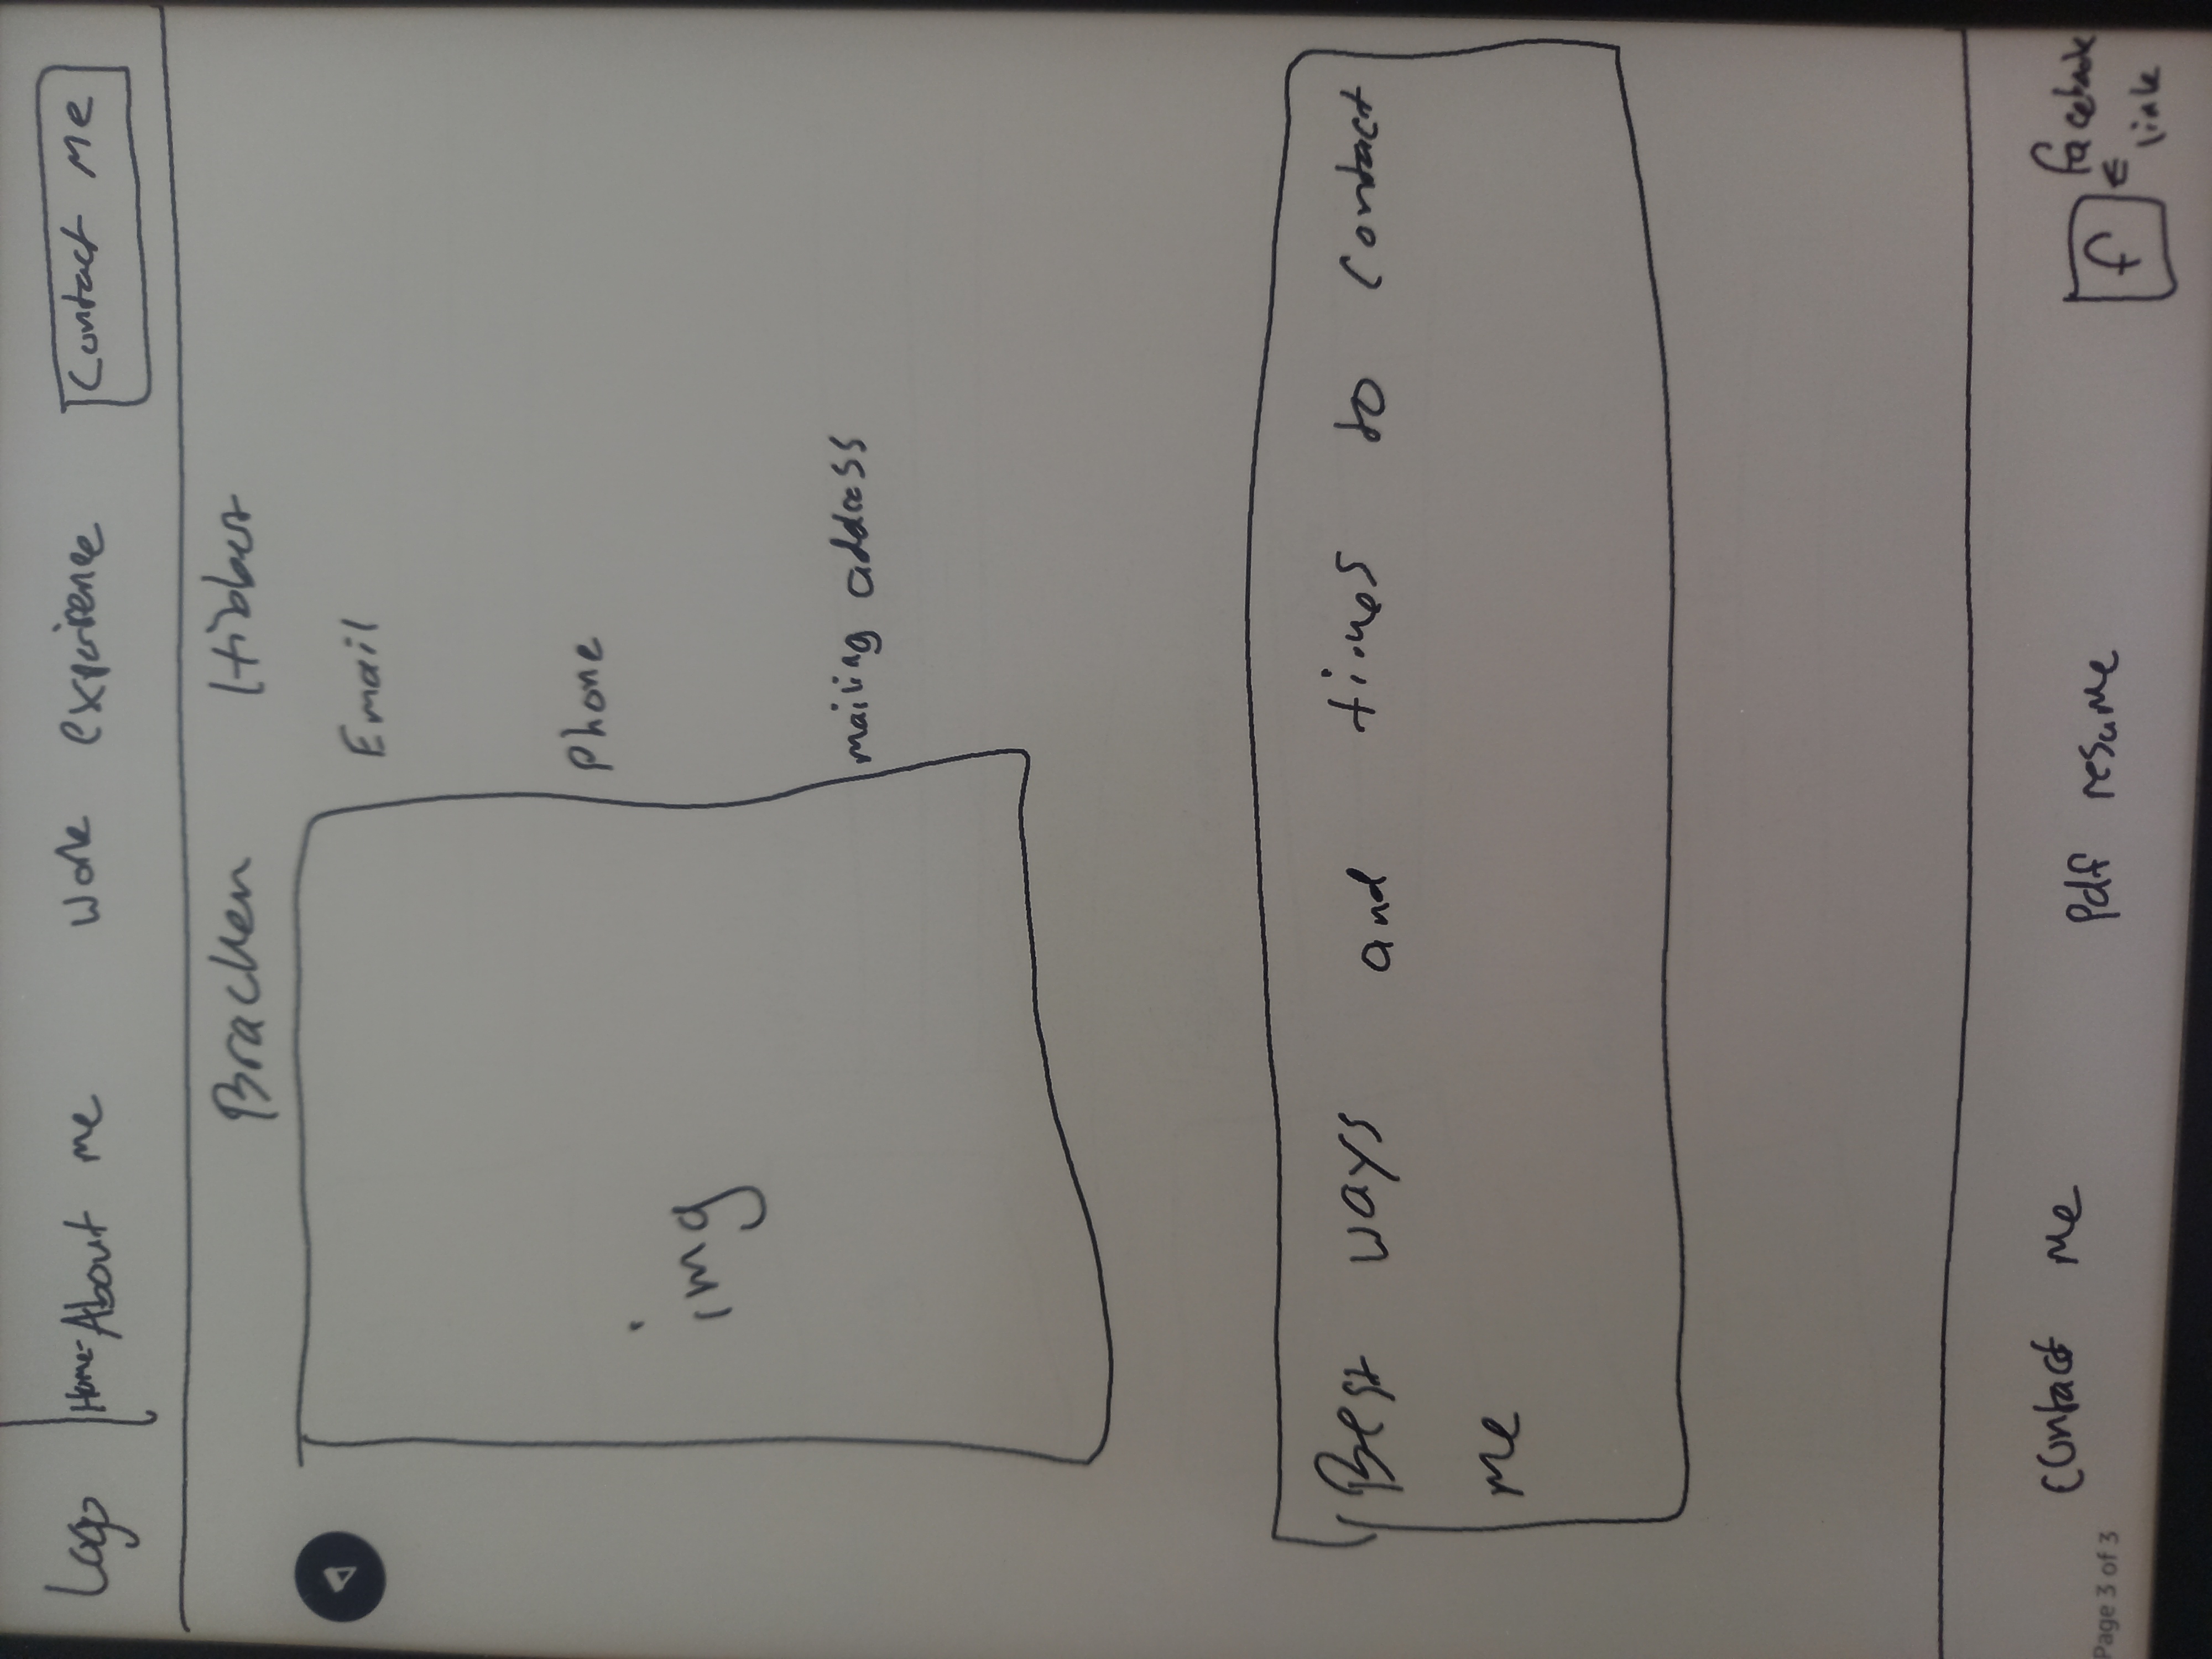 Logo Home- About me Work experience Contact Me
Bracken Hibbert
Email
Phone
img
mailing address
Best ways and times to contact
me
Contact me
Pdf resume
f
facebook
link
Page 3 of 3